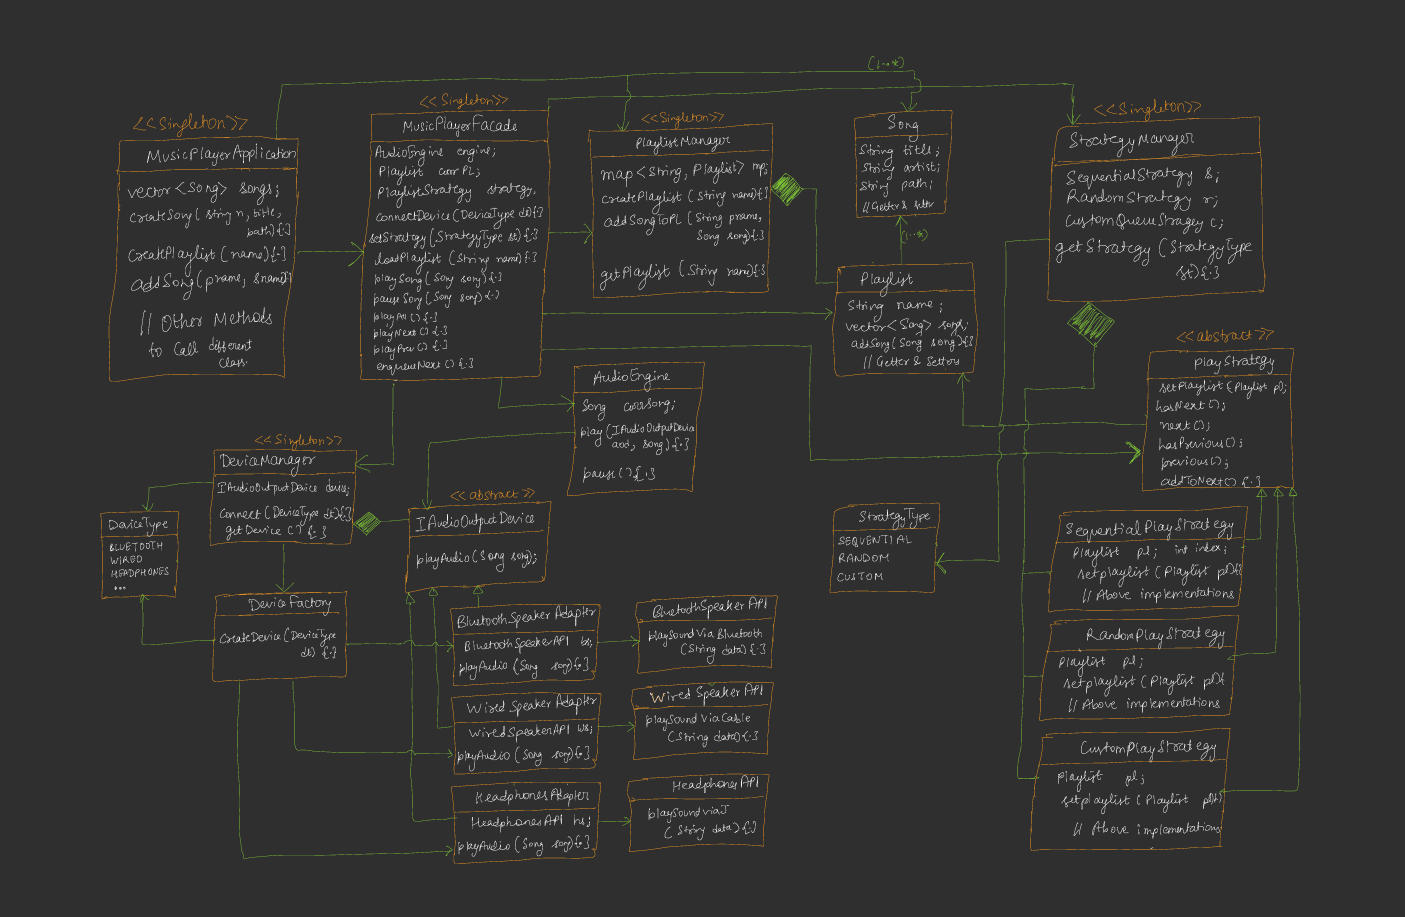 <<Singleton>>
MusicPlayerApplication
vector<Song> songs;
createSong(string n, title,
path){.}
createPlaylist(name){.}
addSong(pname, sname){}
// Other Methods
to Call different
Class.
<<Singleton>>
MusicPlayerFacade
AudioEngine engine;
Playlist currPL;
PlaylistStrategy strategy,
connectDevice(DeviceType dt){.}
setStrategy(StrategyType st){.}
loadPlaylist(String name){.}
playSong(Song song){.}
pauseSong(Song song){.}
playAll(){.}
playNext(){.}
playPrev(){.}
enqueueNext(){.}
<<Singleton>>
PlaylistManager
map<String, Playlist> mp;
createPlaylist(String name){.}
addSongToPL(String pname,
Song song){.}
getPlaylist(String name){.}
(1..*)
Song
String title;
String artist;
String path;
// Getter & Setter
(1..*)
Playlist
String name;
vector<Song> songs;
addSong(Song song){}
// Getter & Setters
<<Singleton>>
StrategyManager
SequentialStrategy s;
RandomStrategy r;
CustomQueueStragey c;
getStrategy(StrategyType
st){.}
<<abstract>>
PlayStrategy
setPlaylist(Playlist pl);
hasNext();
next();
hasPrevious();
previous();
addToNext(){.}
AudioEngine
Song currSong;
play(IAudioOutputDevice
aod, Song){.}
pause(){.}
<<Singleton>>
DeviceManager
IAudioOutputDevice device;
Connect(DeviceType dt){.}
getDevice(){.}
DeviceType
BLUETOOTH
WIRED
HEADPHONES
...
DeviceFactory
CreateDevice(DeviceType
dt){.}
<<abstract>>
IAudioOutputDevice
playAudio(Song song);
BluetoothSpeakerAdapter
BluetoothSpeakerAPI bs;
playAudio(Song song){.}
BluetoothSpeakerAPI
playSoundViaBluetooth
(String data){.}
WiredSpeakerAdapter
WiredSpeakerAPI ws;
playAudio(Song song){.}
WiredSpeakerAPI
playSoundViaCable
(String data){.}
HeadphonesAdapter
HeadphonesAPI hs;
playAudio(Song song){.}
HeadphonesAPI
playSoundviaJ
(String data){.}
StrategyType
SEQUENTIAL
RANDOM
CUSTOM
SequentialPlayStrategy
Playlist pl; int index;
setplaylist(Playlist pl){}
// Above implementations
RandomPlayStrategy
Playlist pl;
setplaylist(Playlist pl){
// Above implementations
CustomPlayStrategy
Playlist pl;
setplaylist(Playlist pl){}
// Above implementations